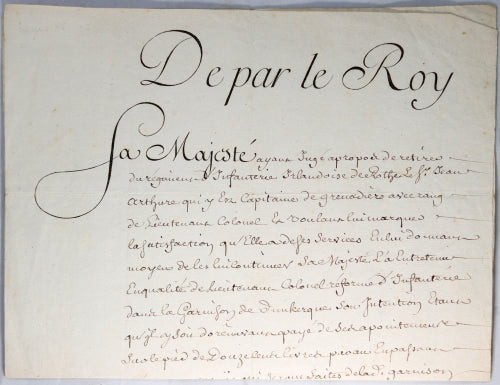 De par le Roy
Sa Majesté ayant Jugé apropos de retirer
du regiment d'Infanterie Irlandoise de Rothe le Sr. Jean
Arthure qui y est Capitaine de Grenadiers avec rang
de Lieutenant Colonel et voulant luy marquer
la satisfaction qu'Elle a de ses services En luy donnant
moyen de les luy continuer Sa Majesté L'a Entretenu
En qualité de Lieutenant Colonel reformé d'Infanterie
dans la Garnison de Dunkerque Son Intention Etant
qu'il y soit dorenavant payé de ses apointemens
Sur le pied de Douze cent Livres par an En passant
faites de lad. garnison